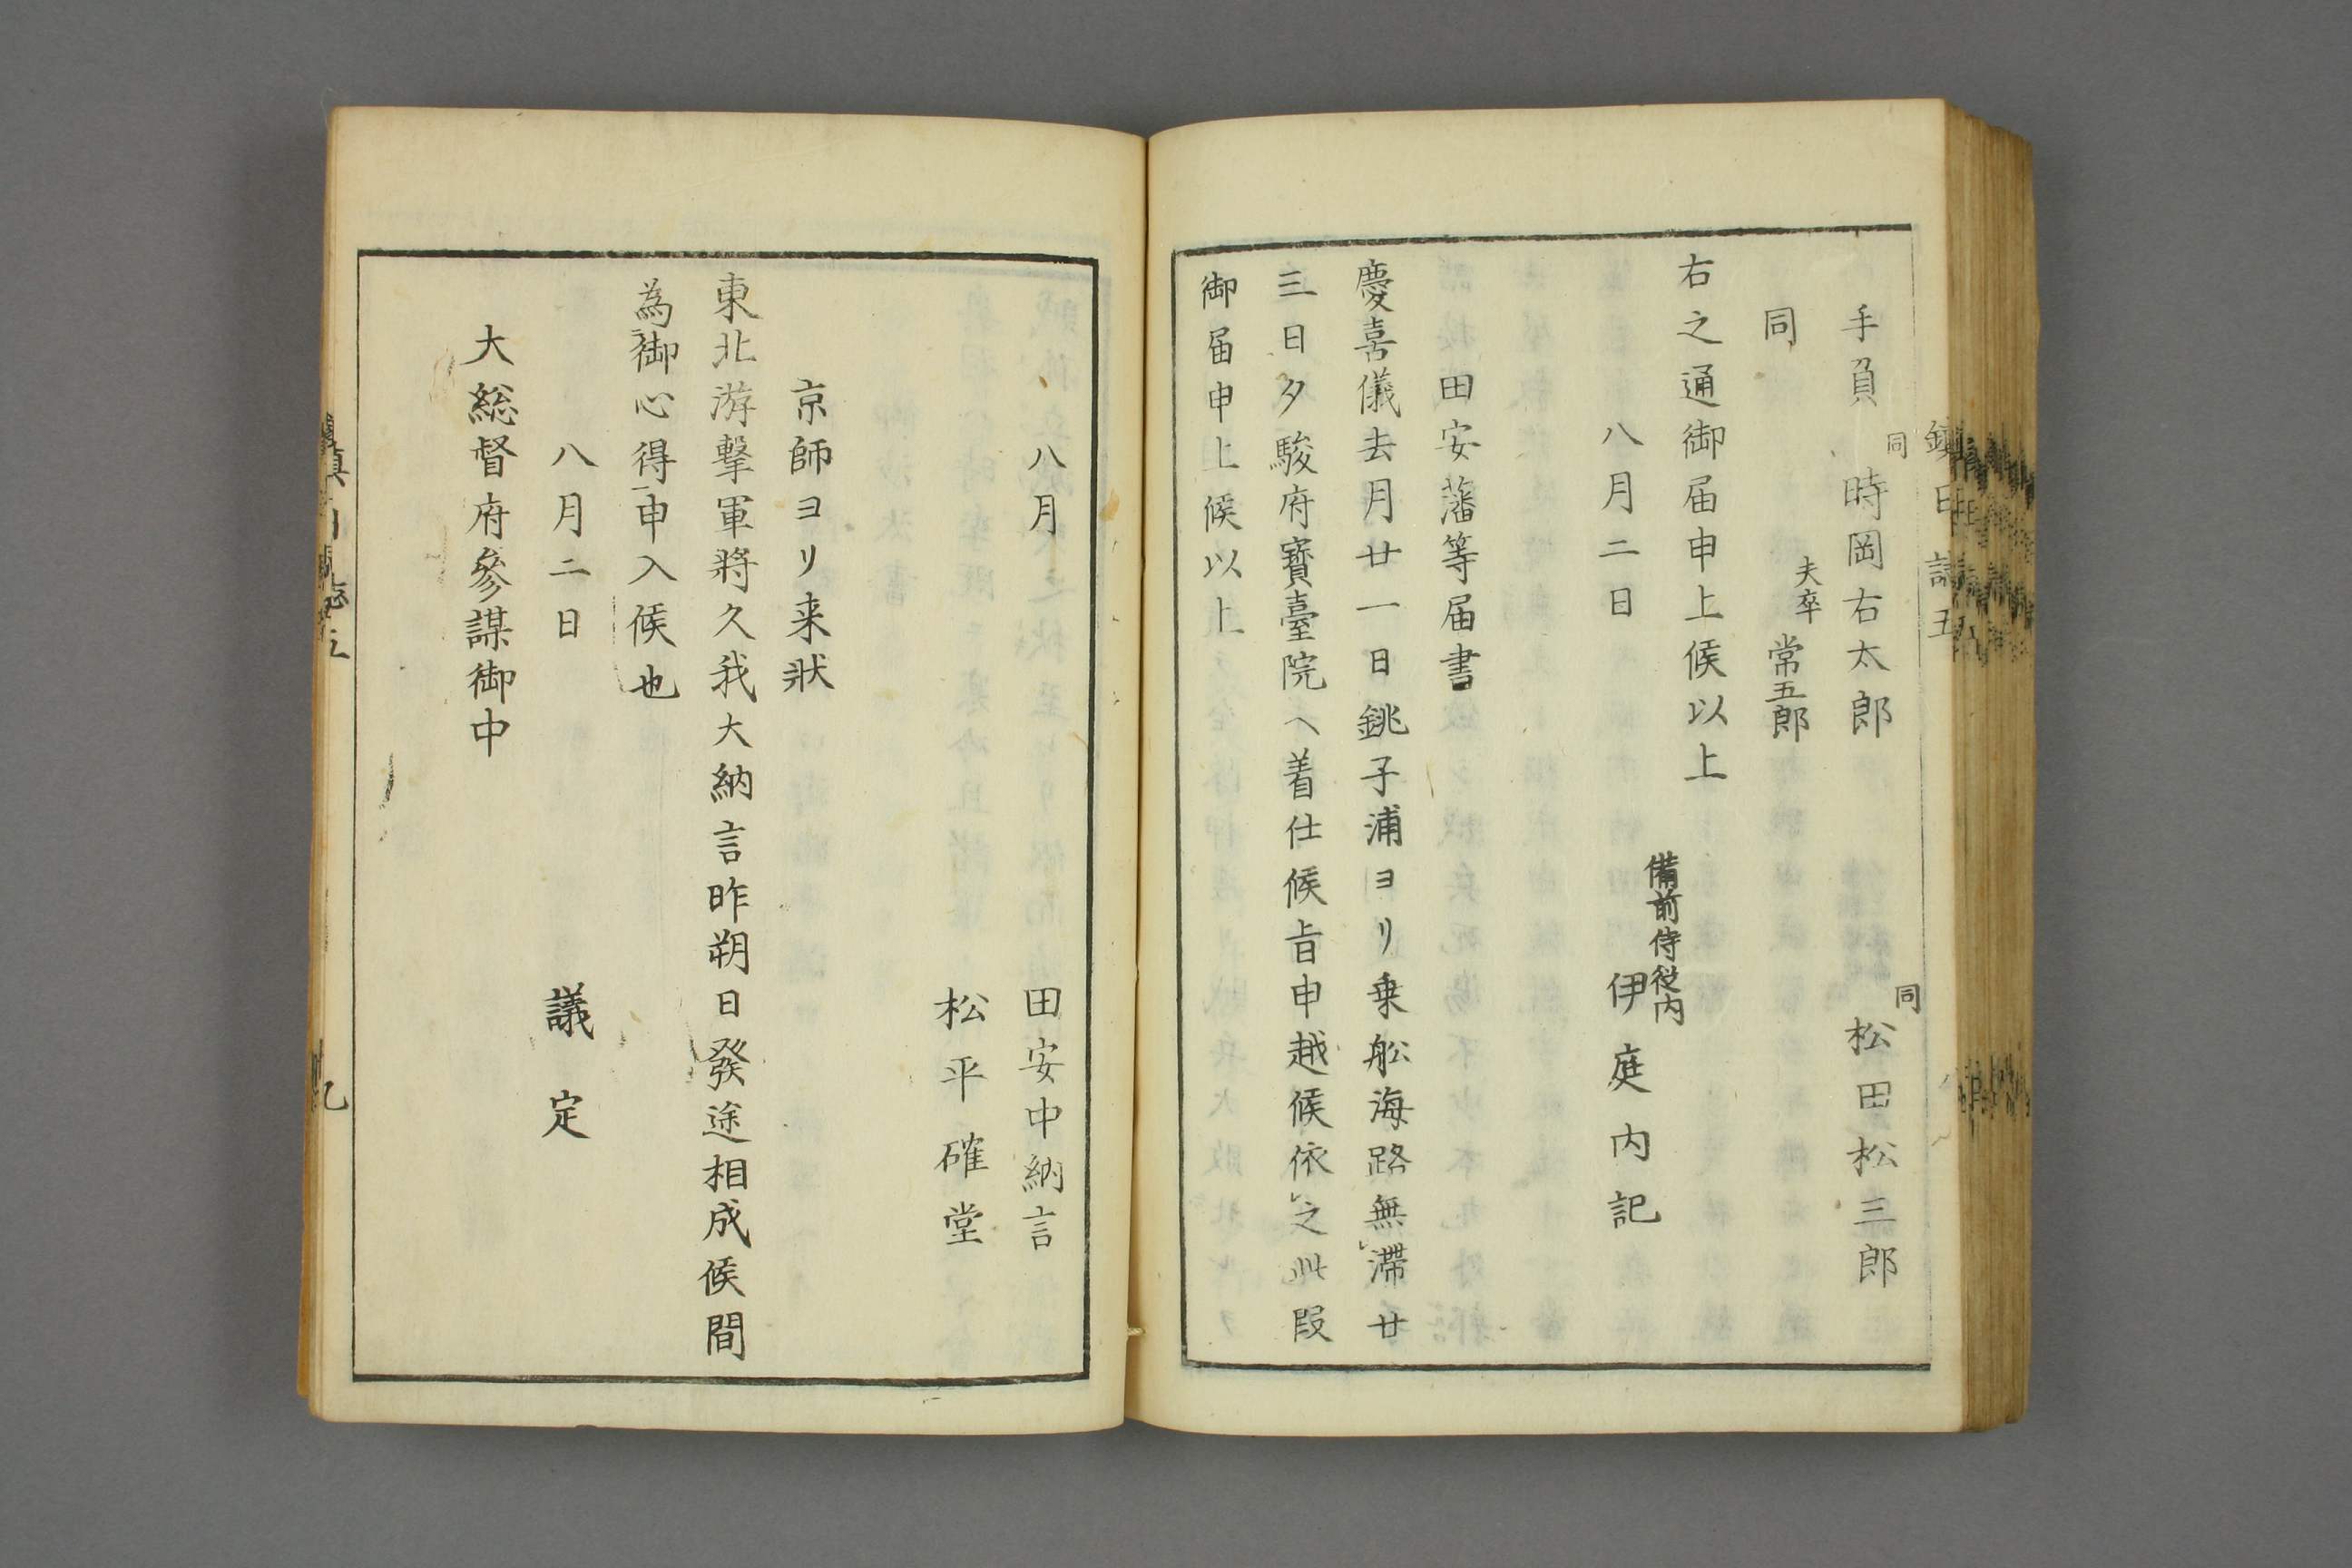 鎮日誌五
手負 同 時岡右太郎 同 松田松三郎
同 夫卒 常五郎
右之通御届申上候以上
八月二日 備前侍従内 伊庭内記
田安藩等届書
慶喜儀去月廿一日銚子浦ヨリ乗舩海路無滞廿
三日夕駿府寳臺院ヘ着仕候旨申越候依之此段
御届申上候以上
八月 田安中納言
松平確堂
京師ヨリ来状
東北游撃軍將久我大納言昨朔日發途相成候間
為御心得申入候也
八月二日 議定
大総督府參謀御中